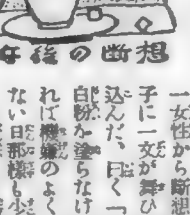 午後の断想
一女性から断想
子に一文が舞ひ
込んだ、曰く「
白粉を塗らなけ
れば機嫌のよく
ない旦那様も少